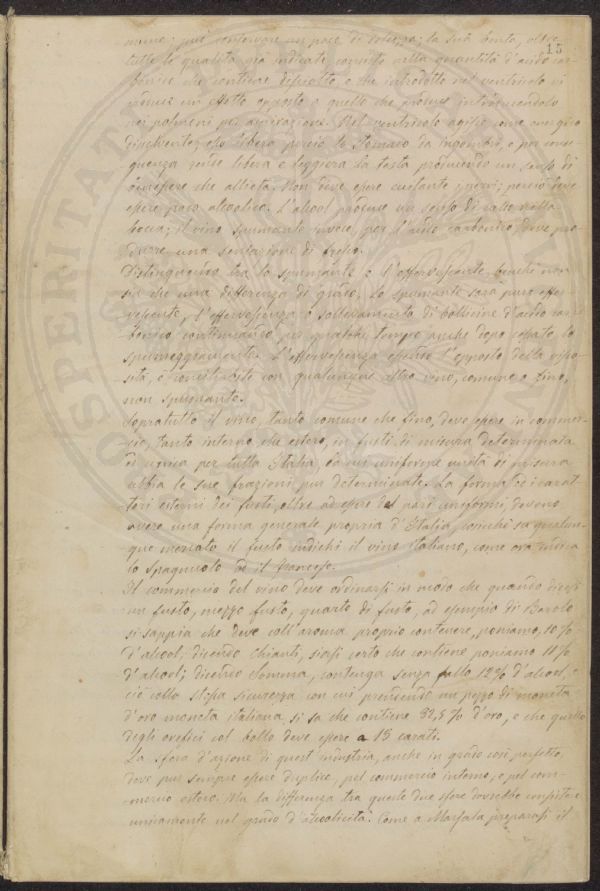 15
nanza; può conservare un poco di dolcezza; la sua bontà, oltre
tutte le qualità già indicate, consiste nella quantità d'acido car-
bonico che contiene disciolto, e che introdotto nel ventricolo vi
produce un effetto opposto a quello che produce introducendolo
nei polmoni per aspirazione. Nel ventricolo agisce come energico
dissolvente; esso libera perciò lo stomaco da ingombri, e per conse-
guenza rende libera e leggiera la testa producendo un senso di
benessere che allieta. Non deve essere eccitante i nervi; perciò deve
essere poco alcoolico. L'alcool produce un senso di caldo nella
bocca; il vino spumante invece, per l'acido carbonico, deve pro-
durre una sensazione di fresco.
Distinguesi tra lo spumante e l'effervescente, benché non
sia che una differenza di grado. Lo spumante sarà pure effer-
vescente, l'effervescenza o sollevamento di bollicine d'acido car-
bonico continuando per qualche tempo anche dopo cessato lo
spumeggiamento. L'effervescenza essendo l'opposto della
è contrasto con qualunque altro vino, comune o fino,
non spumante.
Sopratutto il vino, tanto comune che fino, deve essere in commer-
cio, tanto interno che estero, in fusti di misura determinata
ed unica per tutta Italia, la cui uniforme unità di misura
abbia le sue frazioni pur determinate. La forma ed i carat-
teri esterni dei fusti, oltre ad essere del pari uniformi, devono
avere una forma generale propria d'Italia, sicchè su qualun-
que mercato il fusto indichi il vino italiano, come ora indica
lo spagnuolo ed il francese.
Il commercio del vino deve ordinarsi in modo che quando dicesi
un fusto, mezzo fusto, quarto di fusto, ad esempio di Barolo
si sappia che deve coll'aroma proprio contenere, poniamo, 10%
d'alcool; dicendo Chianti, siasi certo che contiene, poniamo 11%
d'alcool; dicendo Somma, contenga senza fallo 12% d'alcool, e
ciò colla stessa sicurezza con cui prendendo un pezzo di moneta
d'oro moneta italiana, si sa che contiene % d'oro, e che quello
degli orefici col bollo deve essere a 18 carati.
La sfera d'azione di quest'industria, anche in grado così perfetto,
deve pur sempre essere duplice, pel commercio interno, e pel com-
mercio estero. Ma la differenza tra queste due sfere dovrebbe consistere
unicamente nel grado d'alcoolicità. Come a Marsala preparasi il